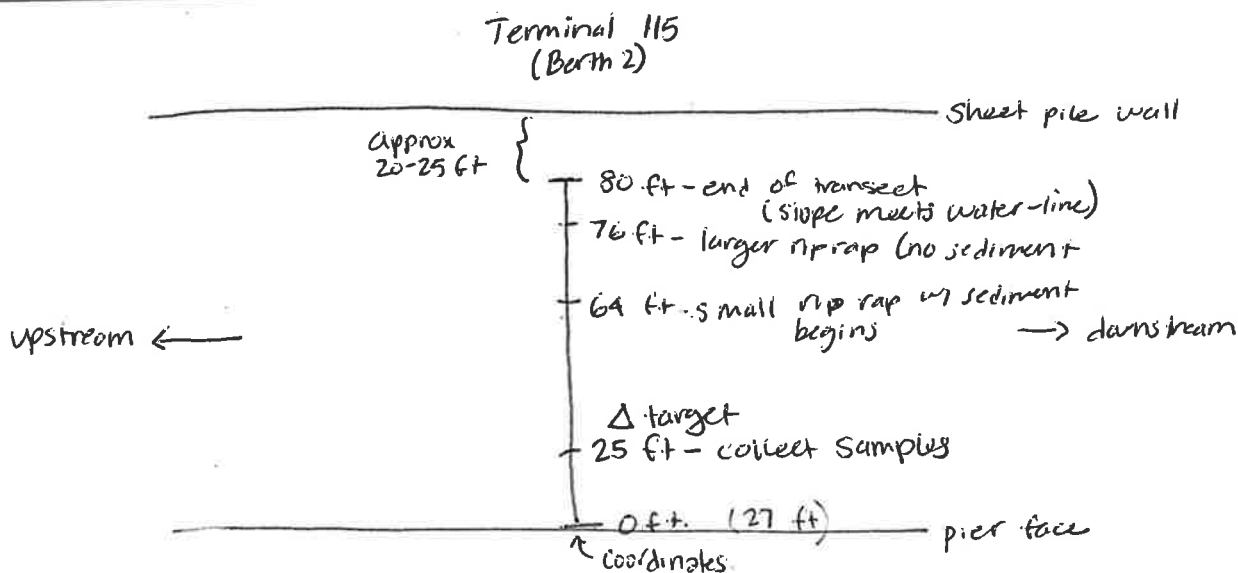 Terminal 115
(Berth 2)
sheet pile wall
approx
20-25 ft
80 ft - end of transect
(slope meets water-line)
76 ft - larger rip rap (no sediment
64 ft. small rip rap w/ sediment
begins
upstream ←
→ downstream
Δ target
25 ft - collect samples
0 ft. (27 ft)
pier face
↑ coordinates